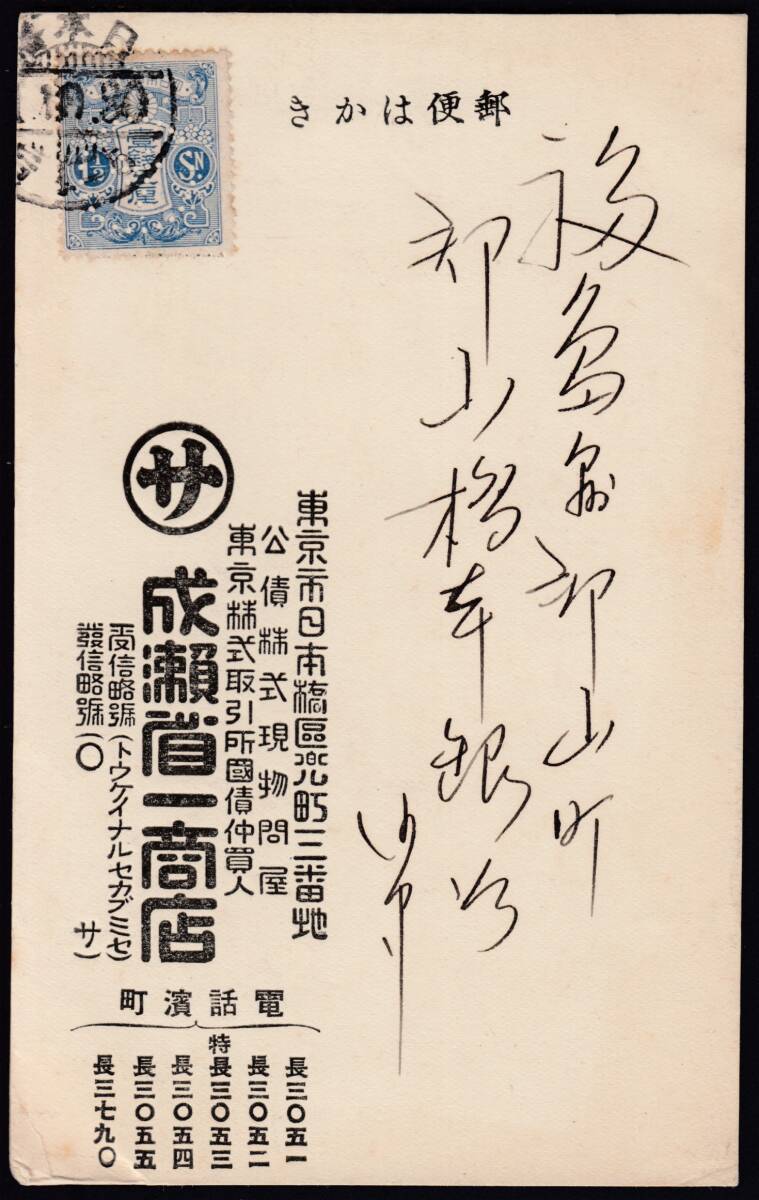 郵便はかき
福島縣郡山町
郡山橋本銀行
御中
東京市日本橋區兜町三番地
公債株式現物問屋
東京株式取引所國債仲買人
サ
成瀬省一商店
受信略號(トウケイナルセカブミセ)
發信略號(〇サ)
電話濱町
長三〇五一
長三〇五二
特長三〇五三
長三〇五四
長三〇五五
長三七九〇
壹錢五厘
1½
SN
日本橋
10.30